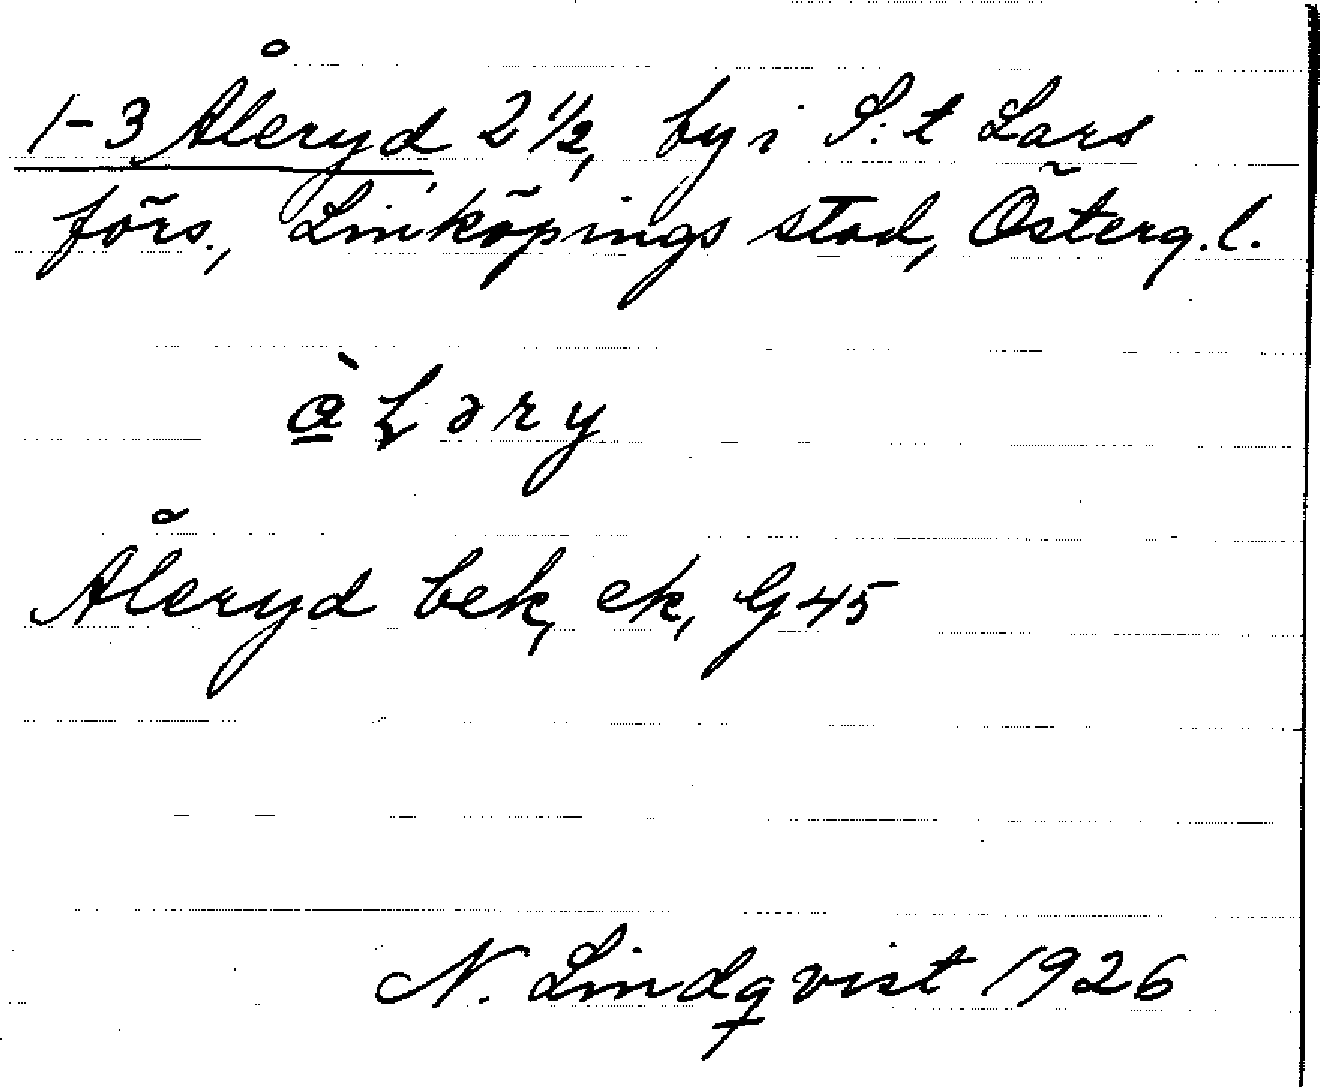 1-3 Åleryd 2 1/2, by i S:t Lars
förs., Linköpings stad, Österg. l.
Åleryd bek, ek, G 45
N. Lindqvist 1926